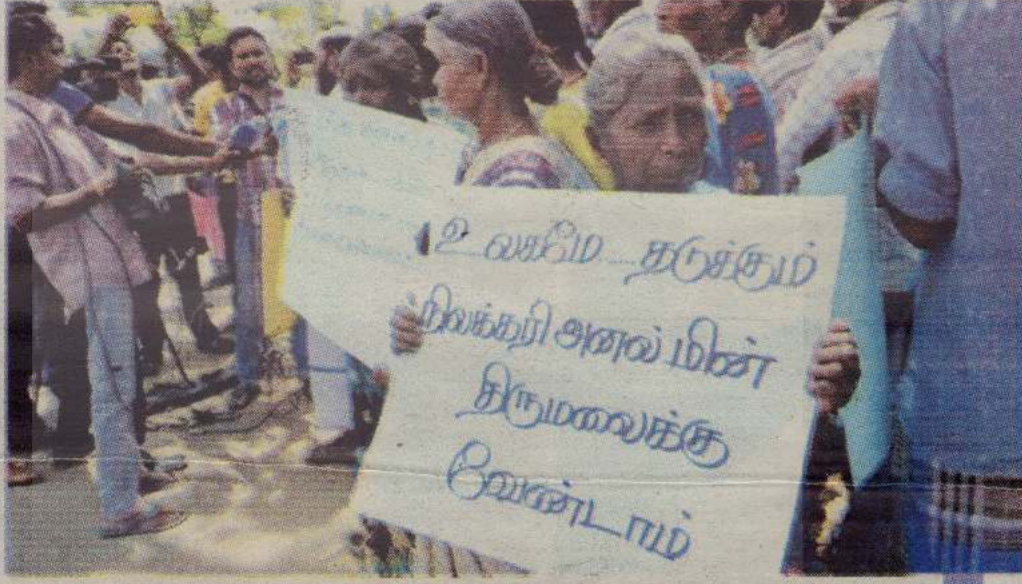 உலகமே தடுக்கும்
நிலக்கரி அனல் மின்
திருமலைக்கு
வேண்டாம்